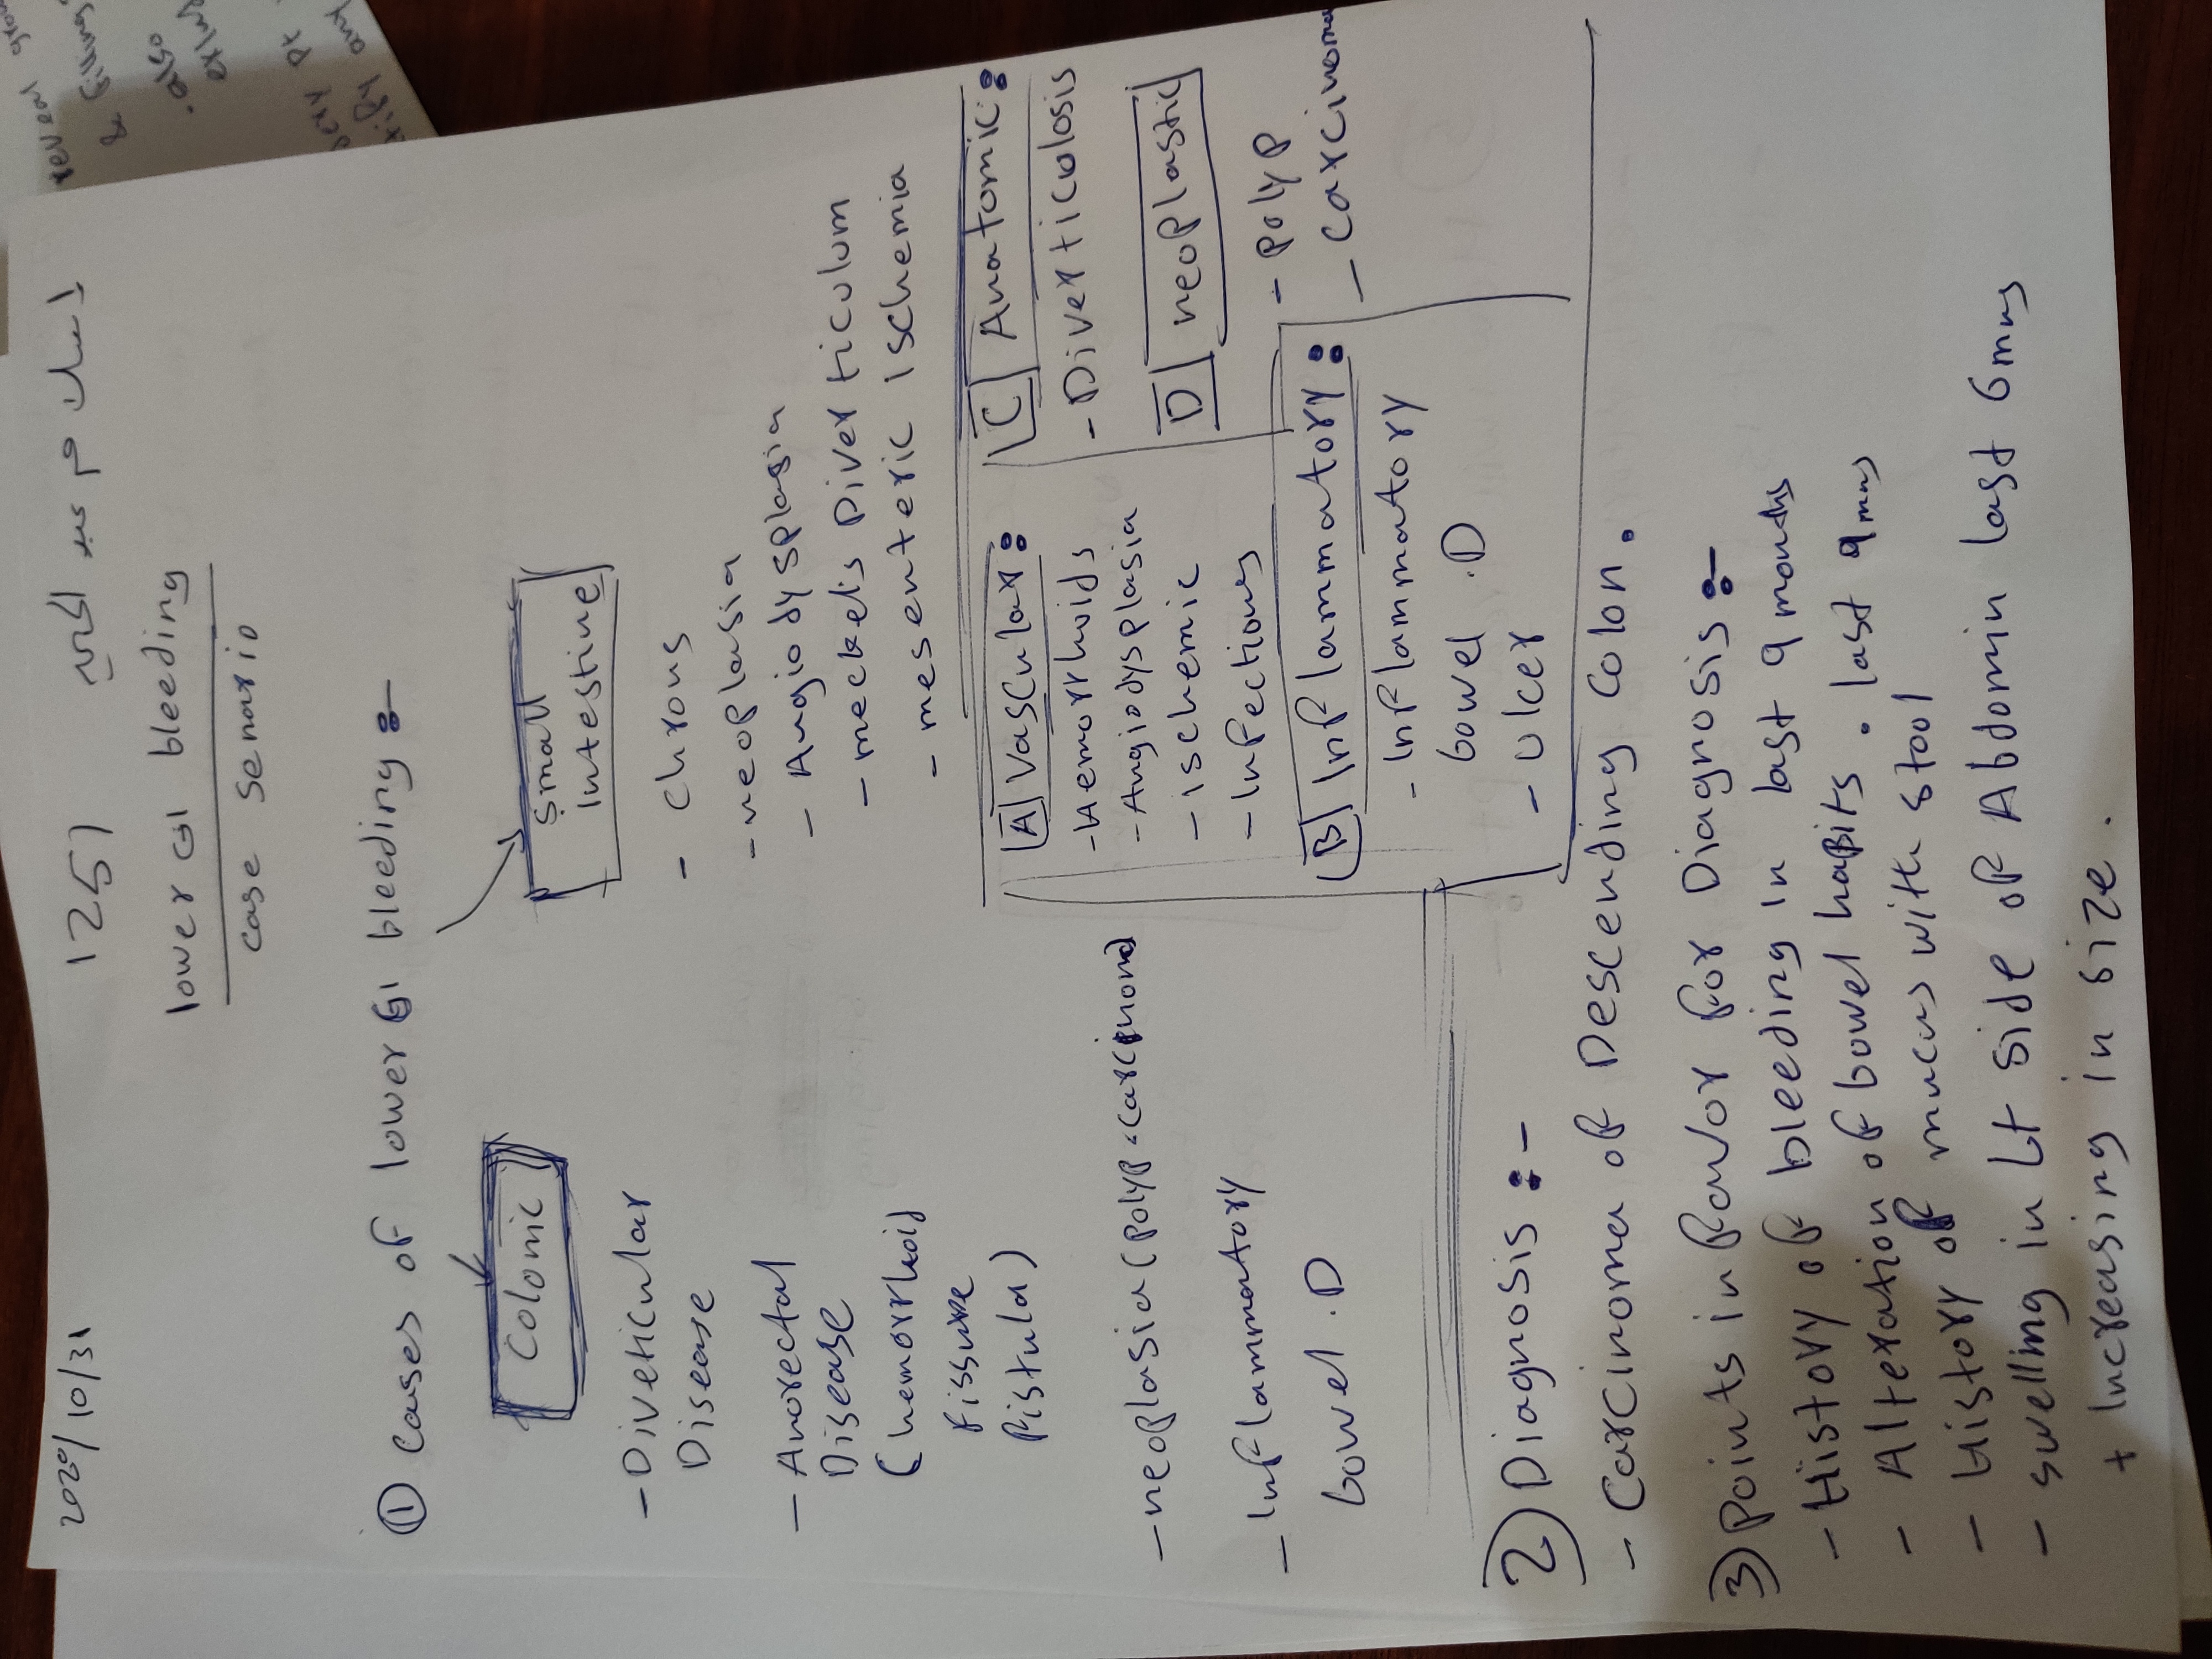 2020/10/31
1251
lower GI bleeding
case senario
① Cases of lower GI bleeding :-
Colonic
- Diveticular
Disease
- Anorectal
Disease
(hemorrhoid
fissure
fistula)
- neoplasia (polyp, carcinoma)
- Inflammatory
bowel .D
Small
Intestine
- Chrons
- neoplasia
- Angiodysplasia
- meckel's Diverticulum
- mesenteric ischemia
A Vascular :
- Haemorrhoids
- Angiodysplasia
- ischemic
- Infectious
B Inflammatory :
- Inflammatory
bowel .D
- Ulcer
C Anatomic :
- Diverticolosis
D neoplastic
- polyp
- carcinoma
2) Diagnosis :-
- Carcinoma of Descending Colon.
3) Points in favor for Diagnosis :-
- History of bleeding in last 9 months
- Alteration of bowel habits . last 9 mns
- History of mucus with stool
- swelling in Lt side of Abdomin last 6 mns
+ Increasing in size.
reveal
&
also
Pt
any